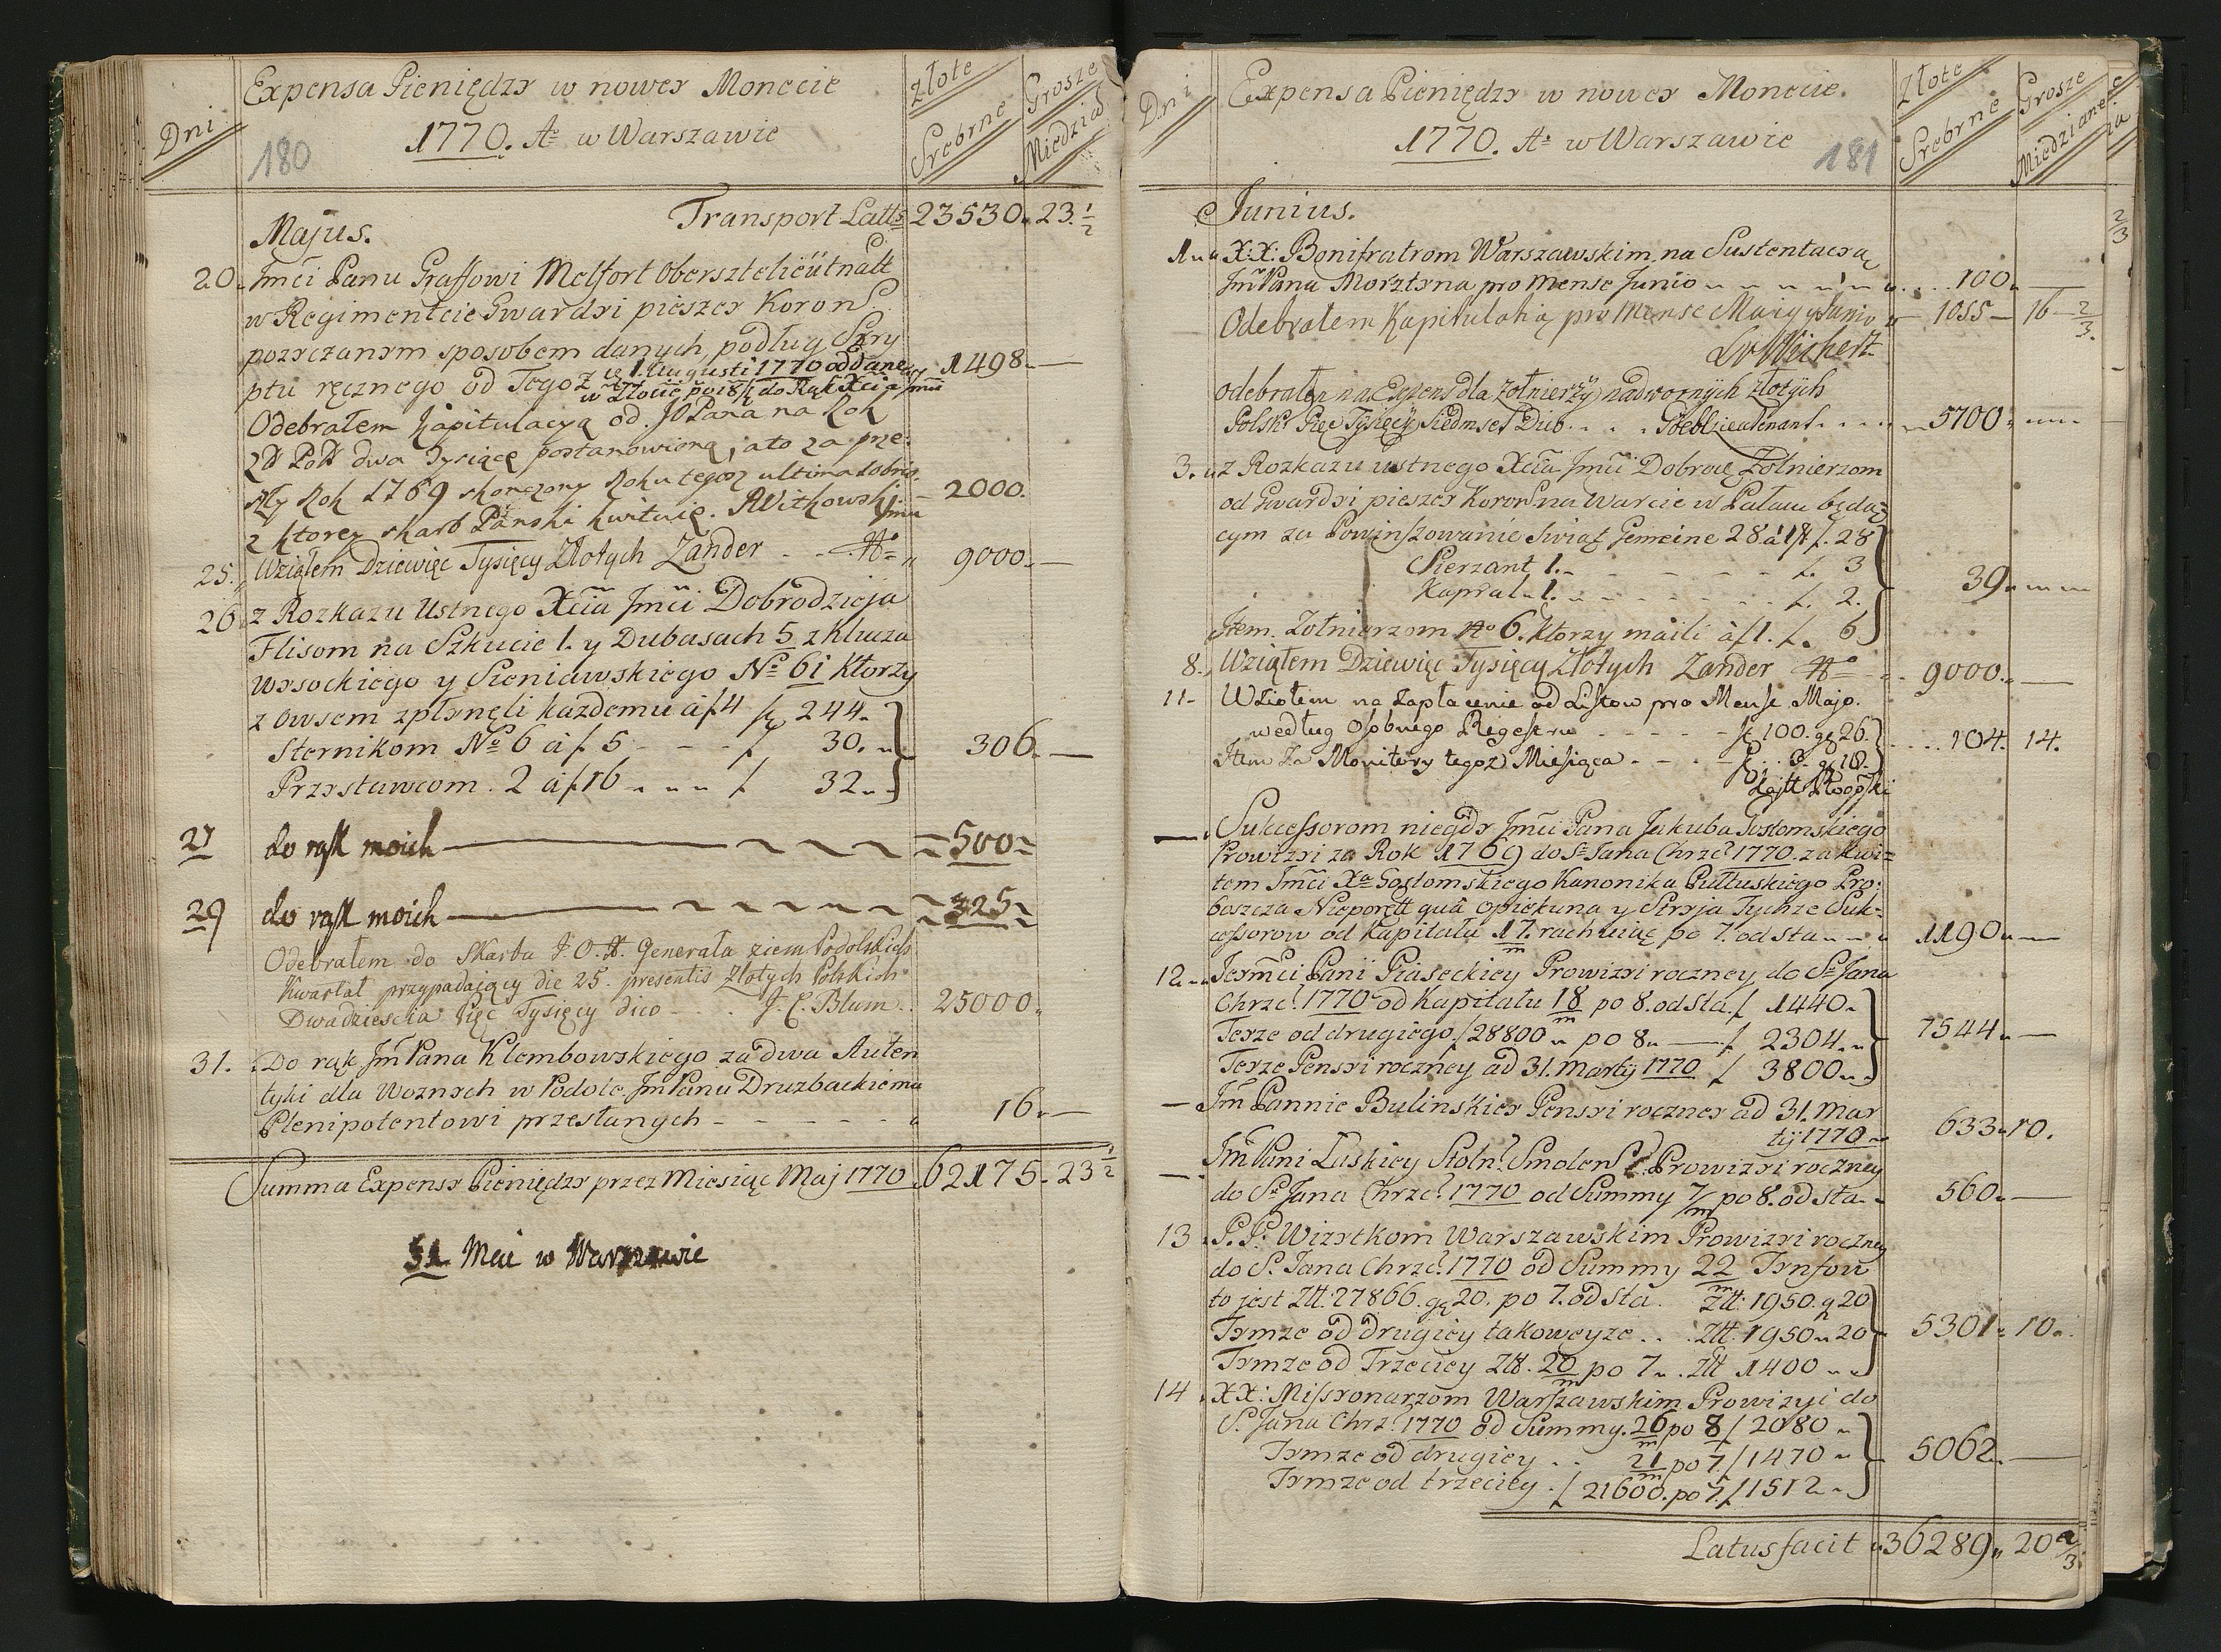 Dni
Expensa Pieniędzy w nowey Monecie
1770. Ao w Warszawie
180
Złote
Srebrne
Grosze
Miedzia
Transport Latts 23530. 23. 1/2
Majus.
20. Jmći Panu Graffowi Melfort Obersztelieütnatt
w Regimencie Gwardyi pieszey Koronn
pozyczanym sposobem danych, podług Skry
ptu ręcznego od Tegoż 1498.
ve 1. Augusti 1770 oddane
w złocie po 18 do Rąk Xcia Jmći
Odebrałem Kapitulacyą od JO Pana na Rok
Zł Poll dwa Tysiące postanowioną, a to za prze
szły Rok 1769 skonczony Roku tegoż ultima 10bris
z ktorey skarb Panski kwituię. AWitkowski 2000.
25. Wziąłem Dziewięc Tysięcy Złotych Zander 9000.
26. z Rozkazu Ustnego Xcia Jmći Dobrodzieja
Flisom na Szkucie 1. y Dubasach 5 z Klucza
Wysockiego y Sieniawskiego No 61 Ktorzy
z owsem zpłynęli każdemu á f 4 f 244.
Sternikom No 6 á f. 5 f 30. 306.
Przystawcom. 2 á f 16 f 32.
27 do rąk moich 500
29 do rąk moich 325
Odebrałem do Skarbu J. O. X. Generała ziem Podolskich
Kwartał przypadaiący die 25. presentis Złotych Polskich
Dwadziescia Pięc Tysięcy dico J. C. Blum. 25000.
31. Do rąk Jm Pana Klembowskiego za dwa Auten
tyki dla Woznych w Podole Jm Panu Druzbackiemu
Plenipotentowi przesłanych 16.
Summa Expensy Pieniędzy przez Miesiąc Maj 1770. 62175. 23 1/2
31. Mai w Warszawie
Dni
Expensa Pieniędzy w nowey Monecie.
1770. Ao w Warszawie
181
Złote
Srebrne
Grosze
Miedziane
2/3
Junius.
1. X: X: Bonifratrom Warszawskim na Sustentacyą
Jm Pana Morsztyna pro Mense Junio 100.
Odebrałem Kapitulatią pro Mense Maij y Junio 1055 16 2/3.
Wichert
odebrałem na Expens dla żołnierzy nadwornÿch złotÿch
Polsk: Pięc Tysięcÿ Siedmset Dico 5700.
3. z Rozkazu ustnego Xcia Jmći Dobroe Zołnierzom
od Gwardyi pieszey Koron na Warcie w Pałacu będą
cym za Powinszowanie Swiąt Gemeine 28 á 1 f. f. 28
Sierzant 1. f. 3
Kapral 1. f. 2. 39.
Item. Zołnierzom No 6. ktorzy mieli á f 1. f. 6
8. Wziąłem Dziewięc Tysięcy Złotych Zander 9000.
11. Wziołem na zapłacenie od Listow pro Mense Majo.
według Osobnego Regestru f 100. gr 26.
Item Za Monitory tegoż Miesiąca f 3. gr 18. 104. 14.
Sukcessorom niegdy Jmći Pana Jakuba Gostomskiego
Prowizyi za Rok 1769 do S. Jana Chrzc. 1770. za kwi=
tem Jmći Xa Gostomskiego Kanonika Pułtuskiego Pro:
boszcza Nieporett quâ opiekuna y Stryja Tychze Suk=
cessorow od Kapitału 17/m rachuiąc po 7. od sta 1190.
12. Jeymći Pani Piaseckiey Prowizyi roczney do S. Jana
Chrzc. 1770 od Kapitału 18/m po 8. od sta. f 1440.
Teyze od drugiego f 28800 po 8. f 2304. 7544.
Teyze Pensyi roczney ad 31. Martij 1770 f 3800.
Jm Pannie Bulinskiey Pensyi roczney ad 31. Mar
tij 1770 633. 10.
Jm Pani Łaskiey Stoln. Smolens. Prowizyi roczney
do S. Jana Chrzc. 1770 od Summy 7/m po 8. od sta 560.
13. P. P. Wizytkom Warszawskim Prowizyi roczney
do S. Jana Chrzc. 1770 od Summy 22/m Tynfow
to jest Złł. 27866. gr 20. po 7. od sta. Złł. 1950. gr 20
Tymze od drugiey takoweyze Złł. 1950. 20 5301. 10.
Tymze od Trzeciey Złł. 20/m po 7. Złł 1400
14. XX: Missyonarzom Warszawskim Prowizyi do
S. Jana Chrz. 1770 od Summy. 26/m po 8 f 2080
Tymze od drugiey 21/m po 7. f 1470 5062.
Tymze od trzeciey. f 21600. po 7. f 1512
Latus facit 36289. 20 2/3.